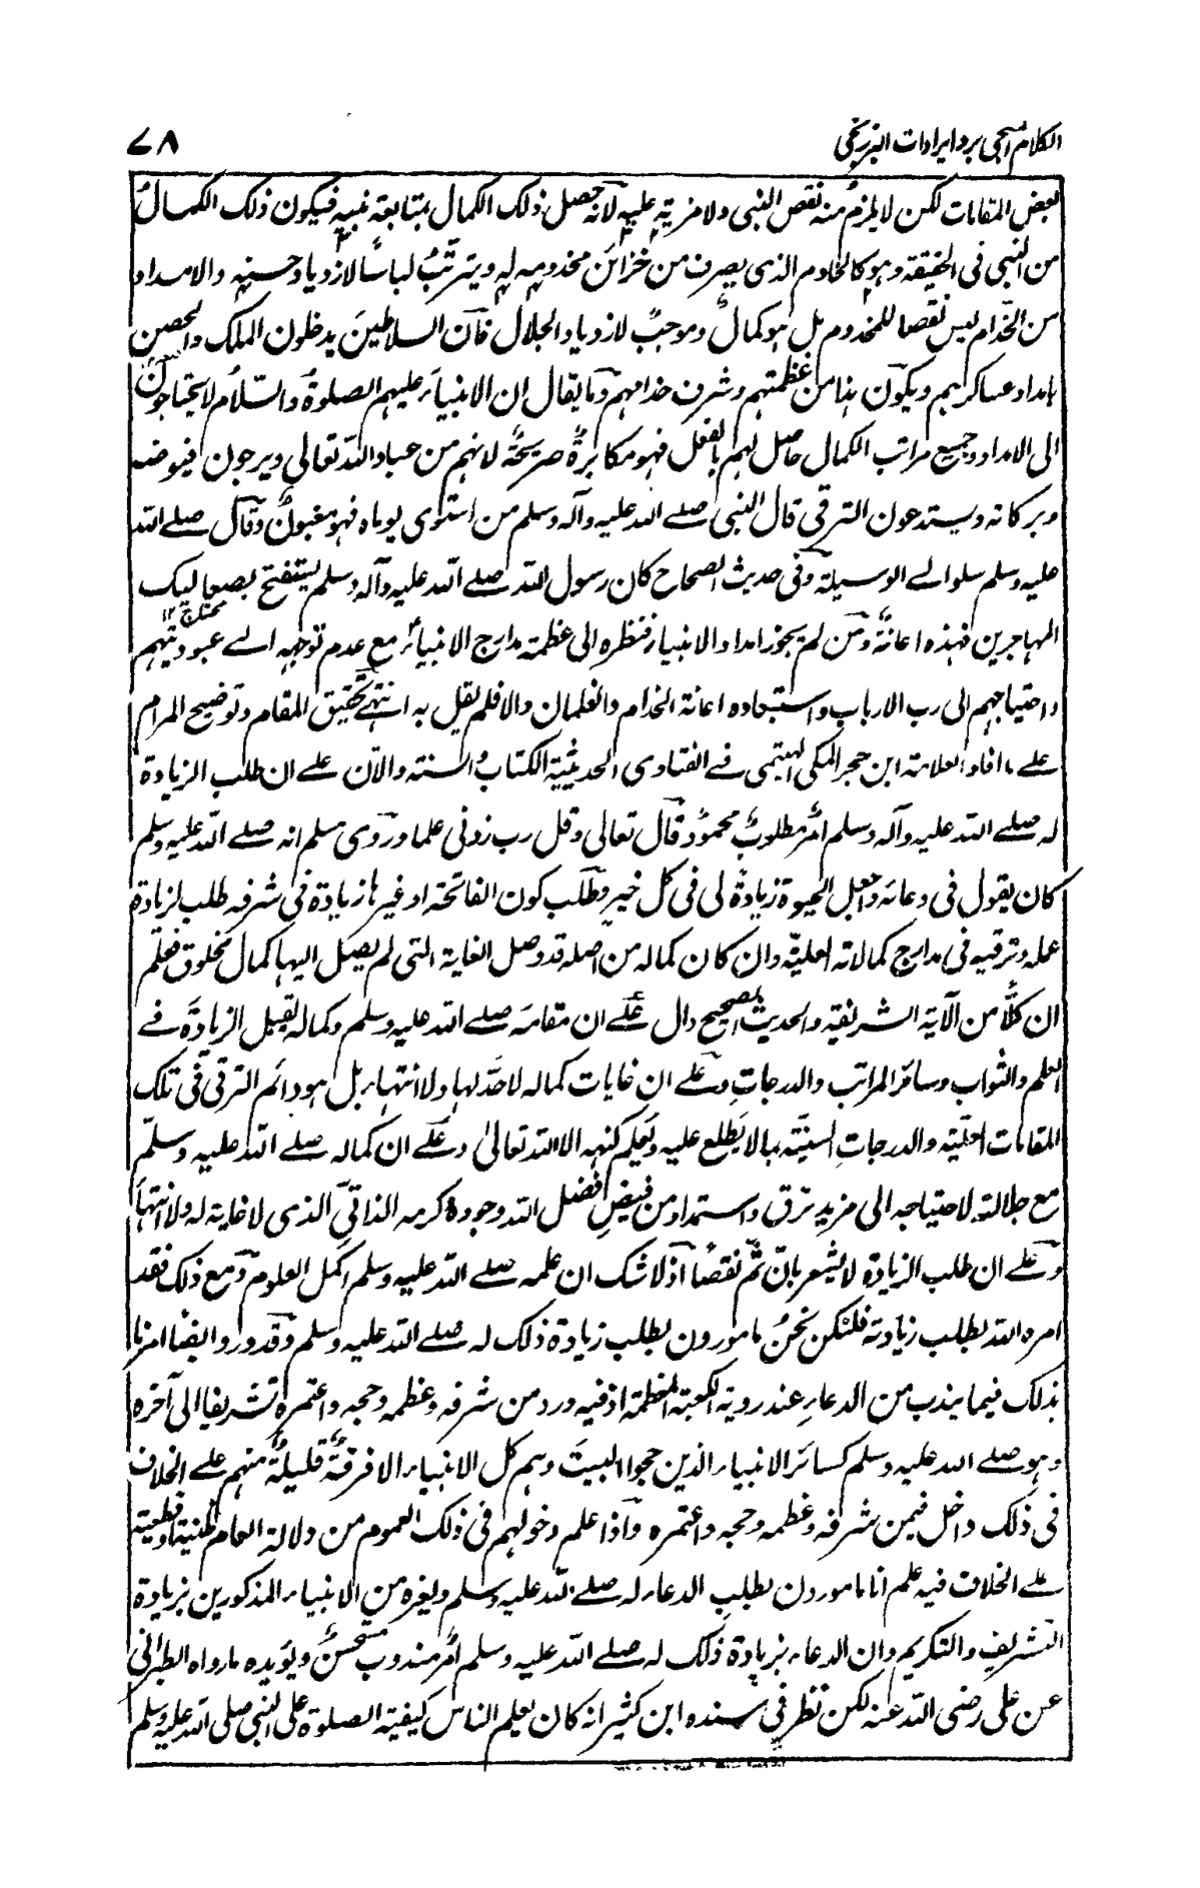 الكلام المنجي برد ايرادات البرزنجي
٧٨
بعض المقامات لكن لا يلزم منه نقص النبي ولا مزيته عليه لانه حصل ذلك الكمال بمتابعة نبيه فيكون ذلك الكمالُ
من النبي في الحقيقة وهو كالخادم الذي يصرف من خزائن مخدومه له ويترتّب لباسًا لازدياد حسنه والامداد
من الخدام ليس نقصا للمخدوم بل هو كمالٌ وموجبٌ لازدياد الجلال فان السلاطينَ يدخلون الملك والحصن
بامداد عساكرهم ويكون هذا من عظمتهم وشرف خدامهم وما يقال ان الانبياء عليهم الصلوة والسلام لا يحتاجون
الى الامداد وجميع مراتب الكمال حاصل لهم بالفعل فهو مكابرةٌ صريحةٌ لانهم من عباد الله تعالى ويرجون فيوضه
وبركاته ويستدعون الترقي قال النبي صلے الله عليه وآله وسلم من استوى يوماه فهو مغبون وقال صلے الله
عليه وسلم سلوا لے الوسيلة وفى حديث الصحاح كان رسول الله صلے الله عليه وآله وسلم يستفتح بصعاليك
المهاجرين فهذه اعانةٌ ومن لم يجوز امداد الانبياء فنظره الى عظمة مدارج الانبياء مع عدم توجهه الے عبوديتهم
محتاج ١٢
واحتياجهم الى رب الارباب واستبعاده اعانة الخدام والغلمان والا فلم يقل به انتهے تحقيق المقام وتوضيح المرام
علے ما افاد العلامة ابن حجر المكي الهيتمي فے الفتاوى الحديثية الكتاب والسنة دالان علے ان طلب الزيادة
له صلے الله عليه وآله وسلم امرٌ مطلوبٌ محمودٌ قال تعالى وقل رب زدني علما وروى مسلم انه صلے الله عليه وسلم
كان يقول في دعائه واجعل الحيوة زيادةً لي في كل خير وطلب كون الفاتحة او غيرها زيادة في شرفه طلب لزيادة
علمه وترقيه في مدارج كمالاته العليّة وان كان كماله من اصله قد وصل الغاية التى لم يصل اليها كمال مخلوق فعلم
ان كلًّا من الآية الشريفة والحديث الصحيح دال علے ان مقامه صلے الله عليه وسلم وكماله يقبل الزيادة فے
العلم والثواب وسائر المراتب والدرجاتِ وعلے ان غايات كماله لا حدّ لها ولا انتهاء بل هو دائم الترقي في تلك
المقامات العليّة والدرجاتِ السنيّة بما لا يطلع عليه ويعلم كنهه الا الله تعالىٰ وعلے ان كماله صلے الله عليه وسلم
مع جلالته لاحتياجه الى مزيد ترق واستمداد من فيض فضل الله وجوده وكرمه الذاتي الذى لا غاية له ولا انتهاء
وعلے ان طلب الزيادة لا يشعر بان ثَمّ نقصًا اذ لا شك ان علمه صلے الله عليه وسلم اكمل العلوم ومع ذلك فقد
امره الله بطلب زيادته فلنكن نحن مامورون بطلب زيادة ذلك له صلے الله عليه وسلم وقد ورد ايضًا امرنا
بذلك فيما يندب من الدعاء عند رويةِ الكعبة المعظمة اذ فيه ورد من شرفه وعظمه وحجه واعتمره تشريفا الى آخره
وهو صلے الله عليه وسلم كسائر الانبياء الذين حجوا البيت وهم كل الانبياء الا فرقةٌ قليلةٌ منهم علے الخلاف
في ذلك داخل فيمن شرفه وعظمه وحجه واعتمره واذا علم دخولهم في ذلك العموم من دلالة العام ظنية او قطعية
علے الخلاف فيه علم انا مامورون بطلب الدعاء له صلے الله عليه وسلم ولغيره من الانبياء المذكورين بزيادة
التشريف والتكريم وان الدعاء بزيادة ذلك له صلے الله عليه وسلم امرٌ مندوب مستحسنٌ ويؤيده ما رواه الطبراني
عن علي رضى الله عنه لكن نظر في سنده ابن كثير انه كان يعلم الناس كيفية الصلوة على النبي صلى الله عليه وسلم